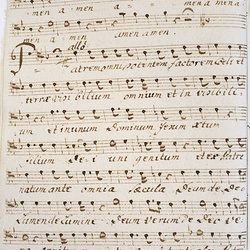 a men a men a men a men a
men a men a men a men.
allo
Patrem omnipotentem factorem celi et
terræ visi bilium omnium et in visibili
um et in unum Dominum Jesum
filium De i uni genitum et ex Patre
natum ante omnia sæcula Deum de De
lumen de lumine Deum verum de Deo ve